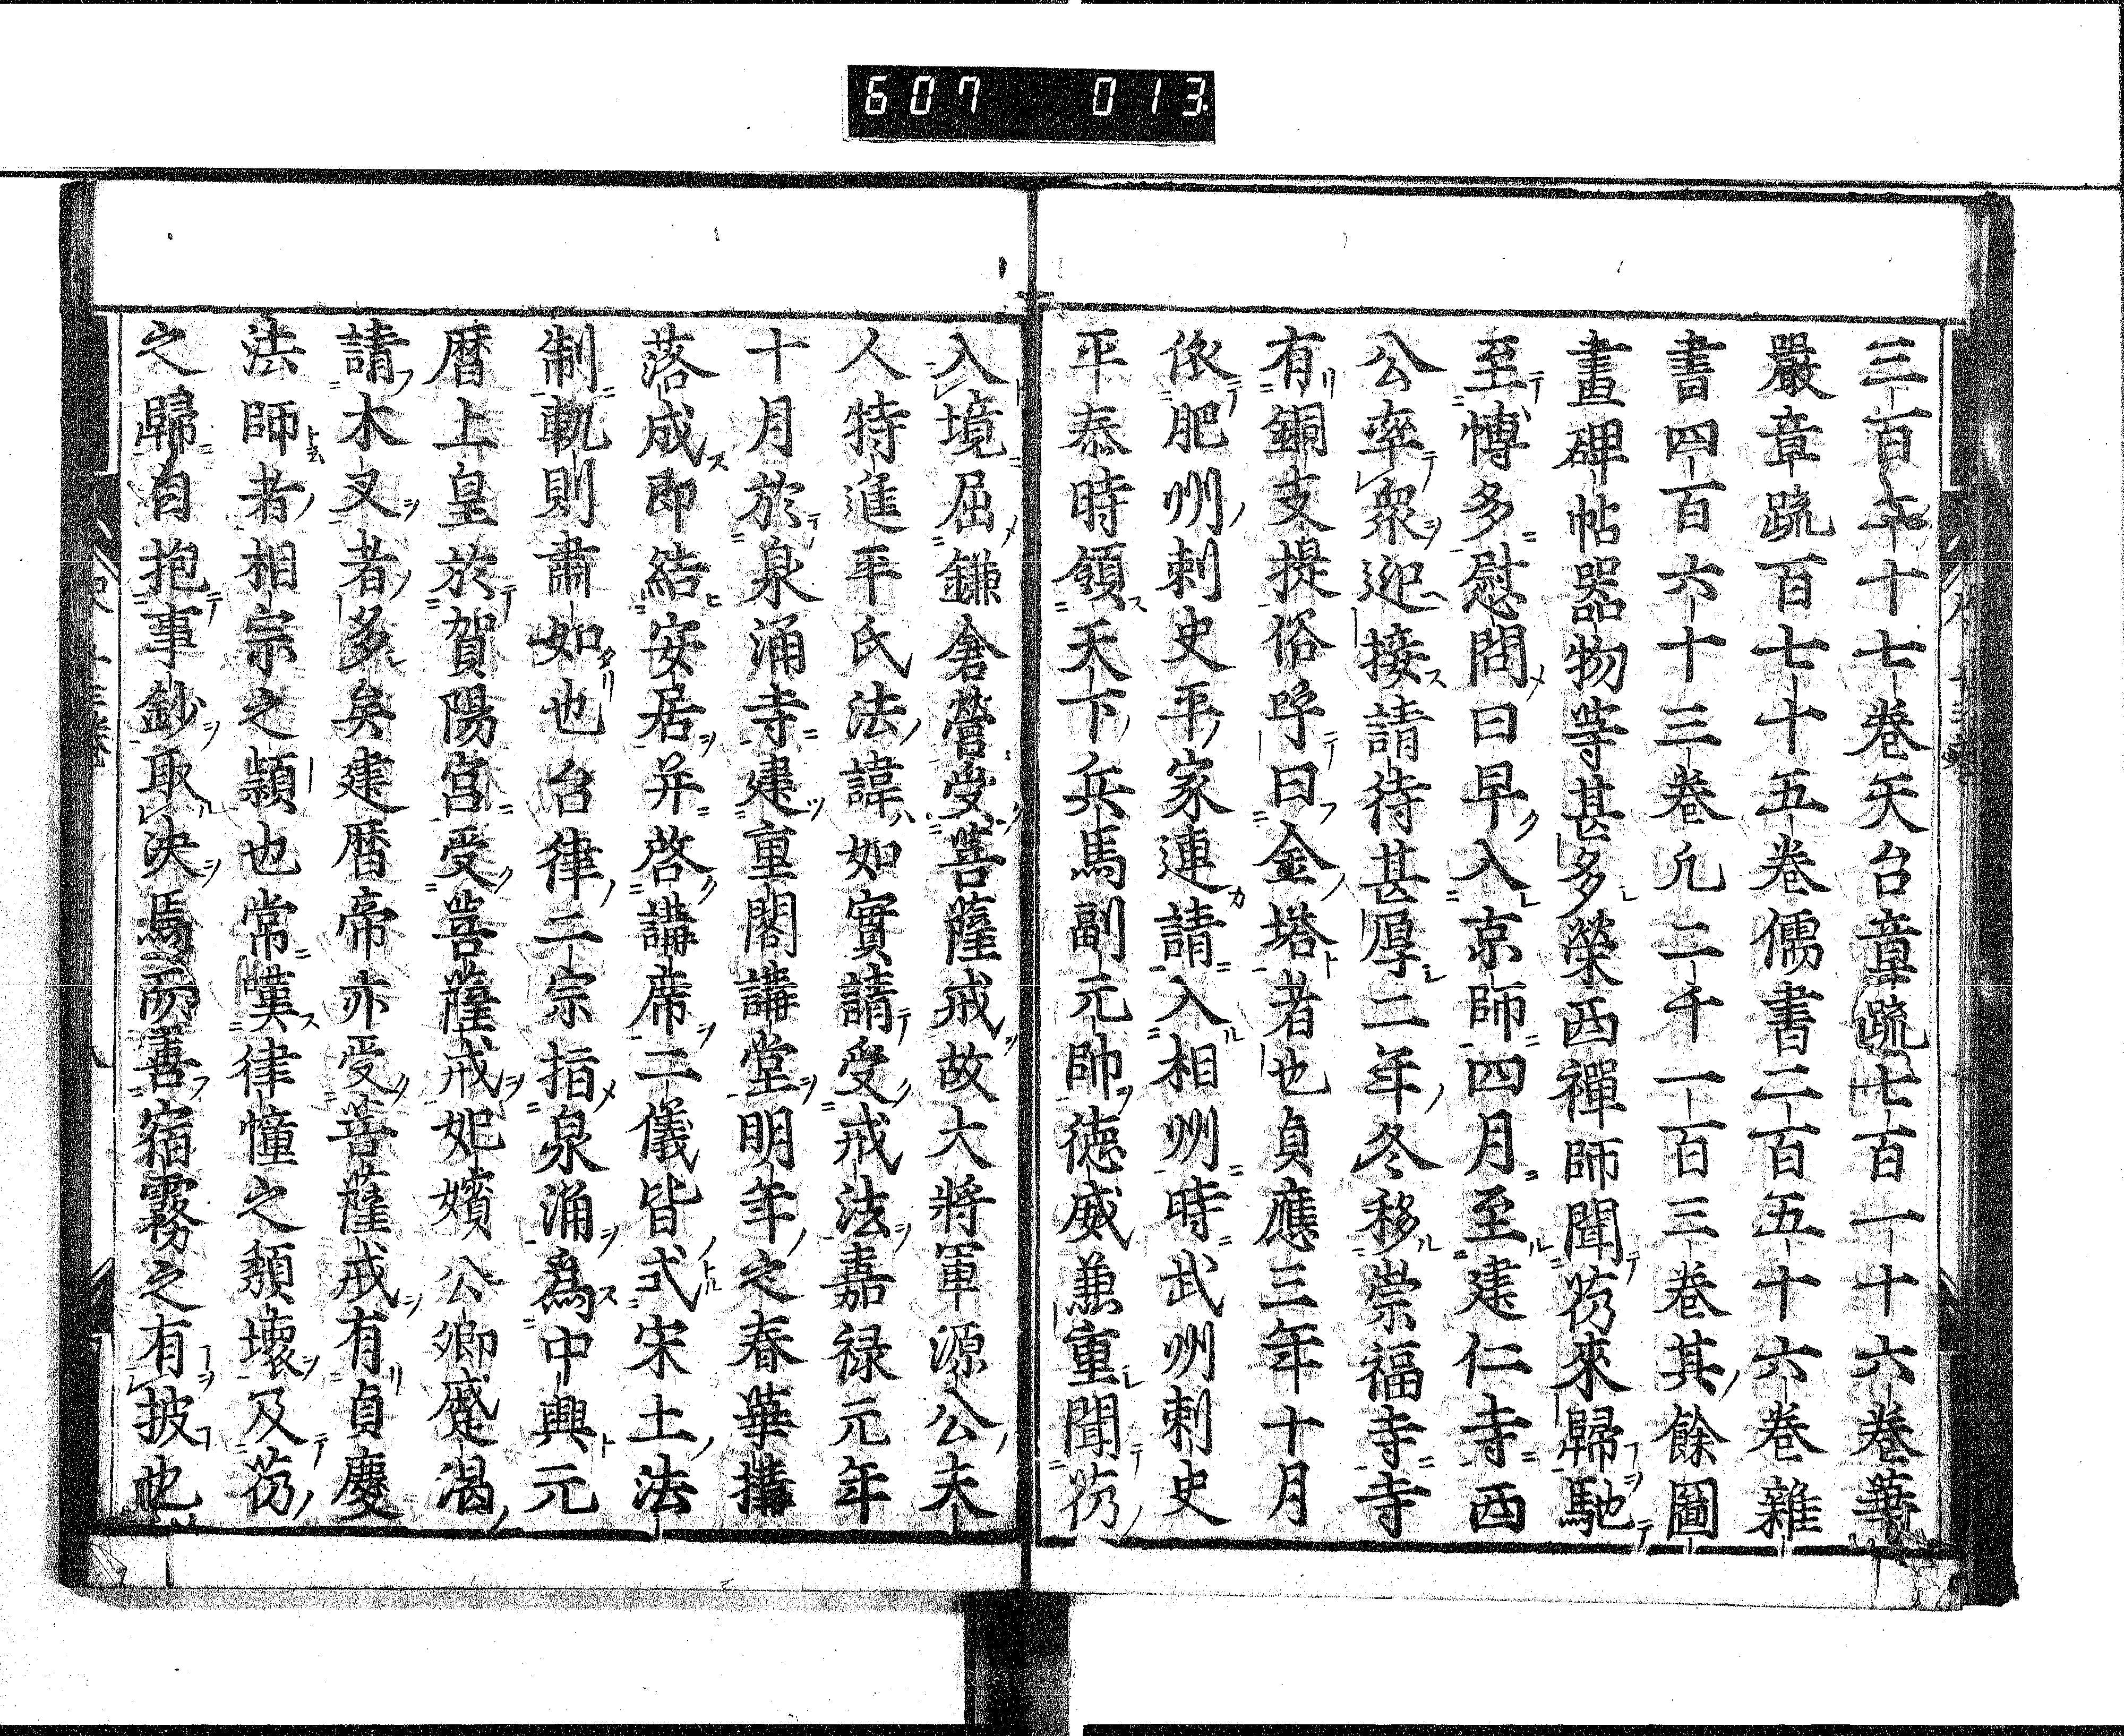 607 013
三百二十七卷天台章疏七百一十六卷華
嚴章疏百七十五卷儒書二百五十六卷雜
書四百六十三卷凡二千一百三卷其餘圖
畫碑帖器物等甚多榮西禪師聞芿來歸馳
至博多慰問曰早入京師四月至建仁寺西
公率衆迎接請待甚厚二年冬移崇福寺寺
有銅支提俗呼曰金塔者也貞應三年十月
依肥州刺史平家連請入相州時武州刺史
平泰時領天下兵馬副元帥德威兼重聞芿
入境屈鎌倉營受菩薩戒故大將軍源公夫
人特進平氏法諱如實請受戒法嘉禄元年
十月於泉涌寺建重閣講堂明年之春華搆
落成即結安居并啓講席二儀皆式宋土法
制軌則肅如也台律二宗指泉涌爲中興元
暦上皇於賀陽宮受菩薩戒妃嬪公卿蹙渇
請木叉者多矣建暦帝亦受菩薩戒有貞慶
法師者相宗之頴也常嘆律幢之頽壞及芿
之歸自抱事鈔取決焉而善宿霧之有披也